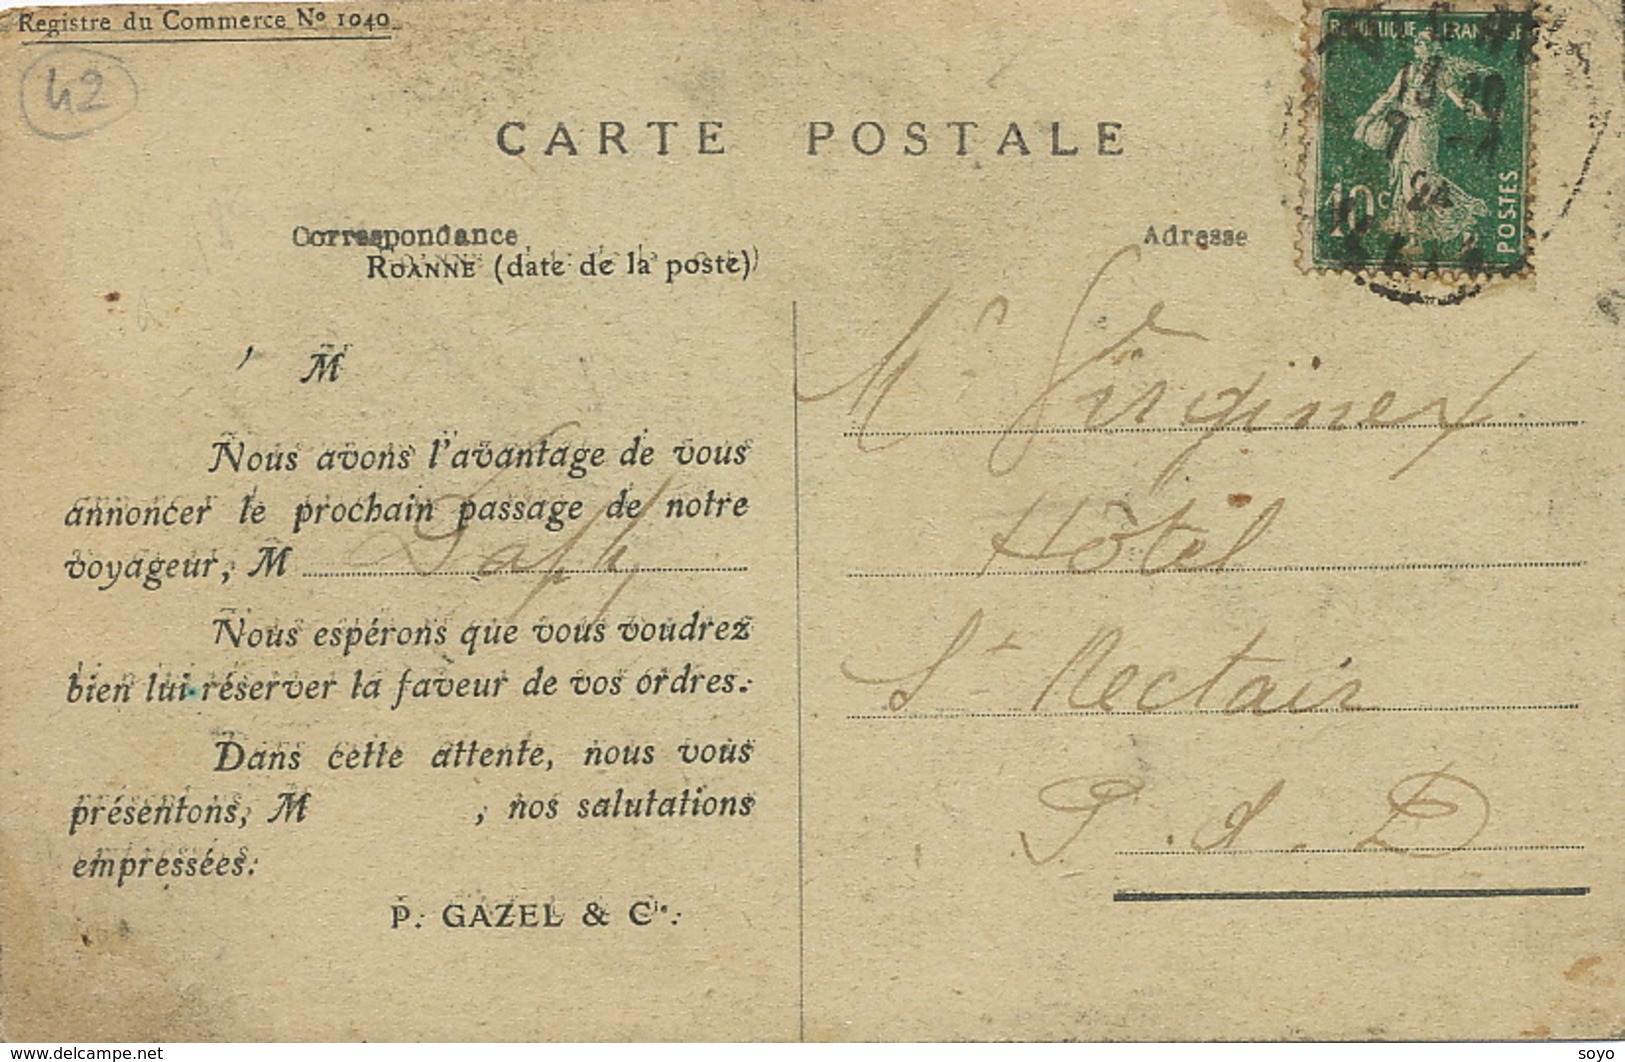 Registre du Commerce Nº 1040
42
CARTE POSTALE
REPUBLIQUE FRANÇAISE
10c
POSTES
13 20
7 - 4
24
Correspondance
Adresse
ROANNE (date de la poste)
M
Nous avons l'avantage de vous
annoncer le prochain passage de notre
voyageur, M
Nous espérons que vous voudrez
bien lui réserver la faveur de vos ordres.
Dans cette attente, nous vous
présentons, M , nos salutations
empressées.
P. GAZEL & Cie.
Mr
Hôtel
St Nectair
P. d. D
www.delcampe.net
soyo